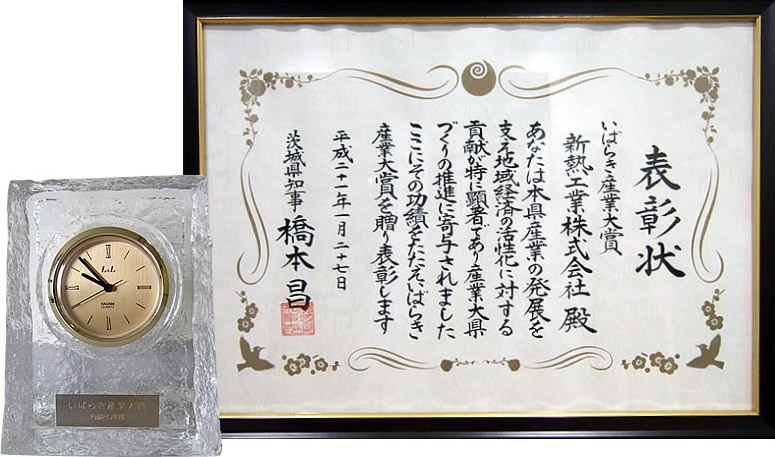 表彰状
いばらき産業大賞
新熱工業株式会社 殿
あなたは本県産業の発展を
支え地域経済の活性化に対する
貢献が特に顕著であり産業大県
づくりの推進に寄与されました
ここにその功績をたたえいばらき
産業大賞を贈り表彰します
平成二十一年一月二十七日
茨城県知事 橋本昌
いばらき産業大賞